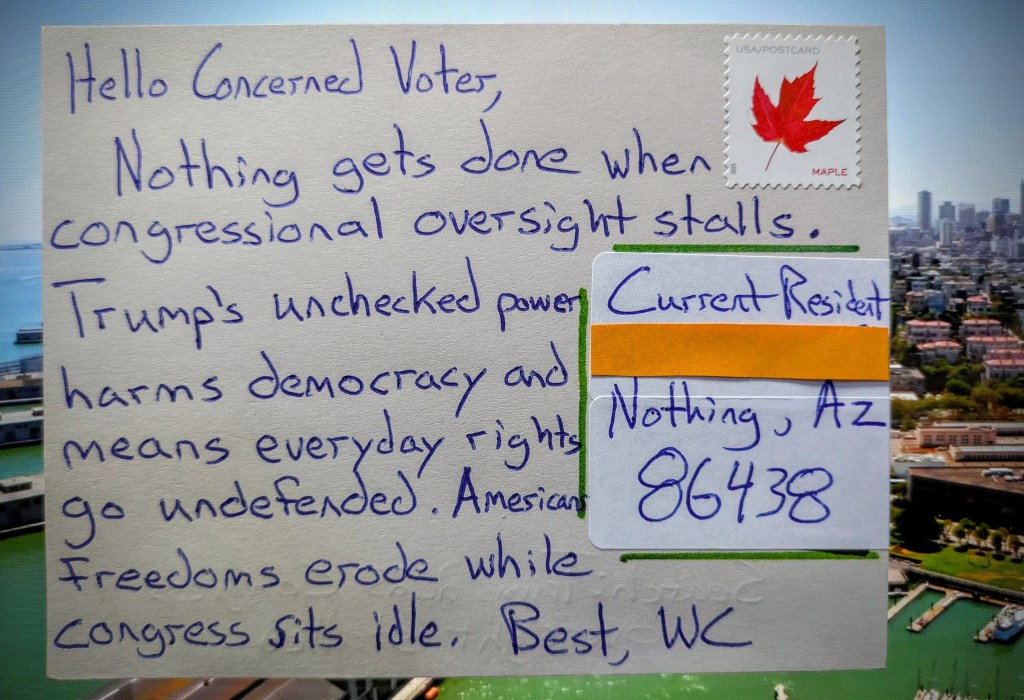 Hello Concerned Voter,
USA/POSTCARD
MAPLE
Nothing gets done when
congressional oversight stalls.
Trump's unchecked power
harms democracy and
means everyday rights
go undefended. Americans
Freedoms erode while
congress sits idle. Best, WC
Current Resident
Nothing, Az
86438